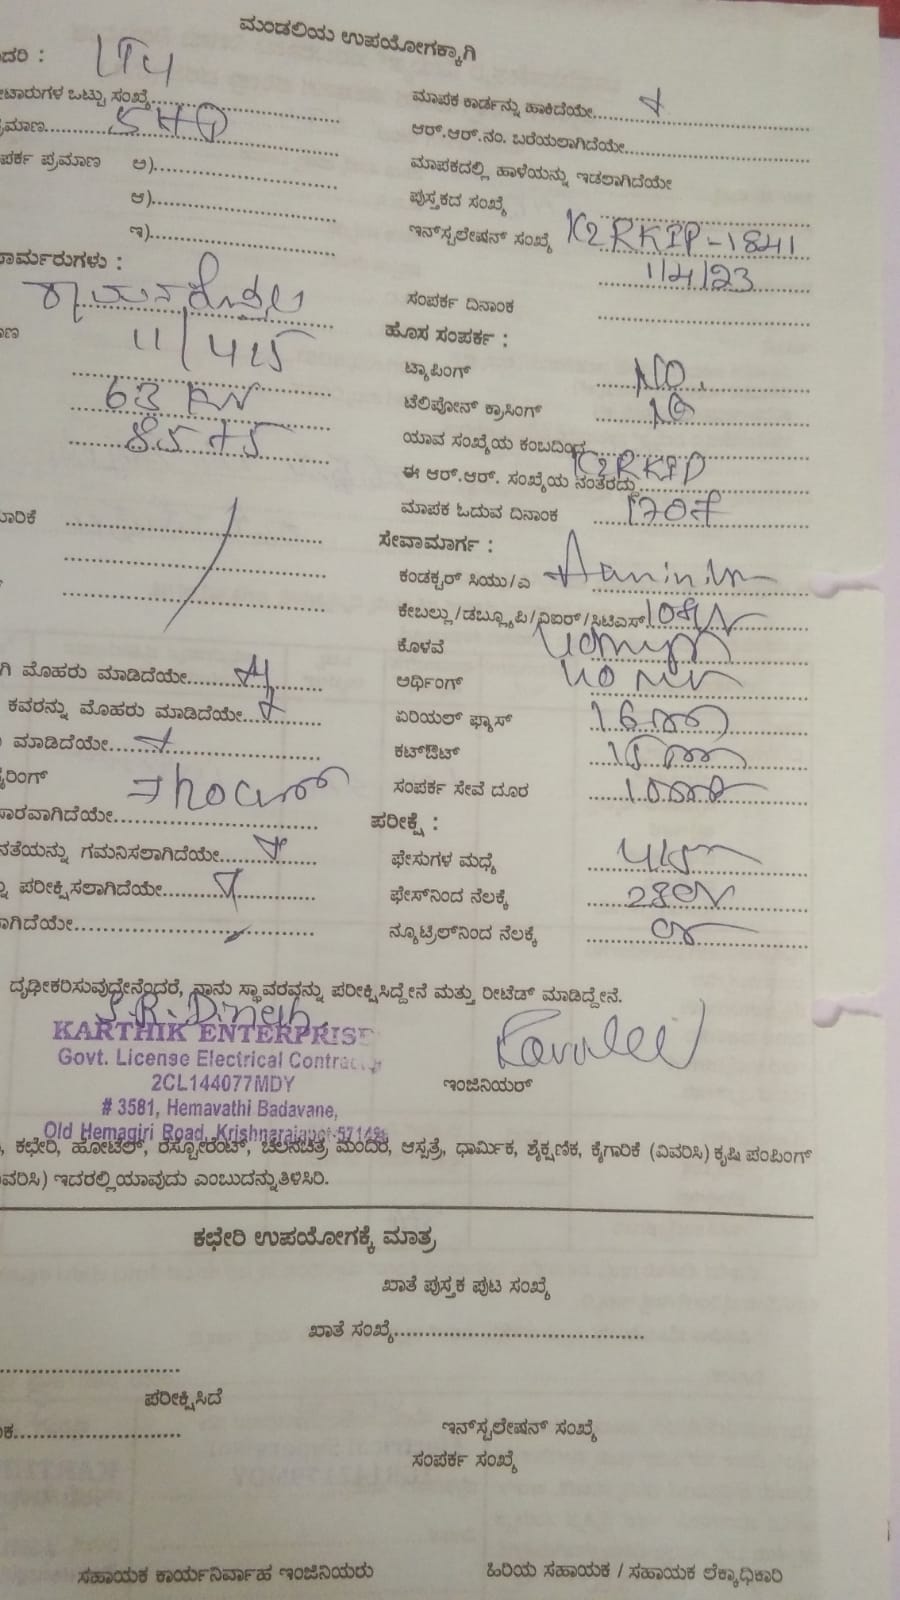 ಮಂಡಲಿಯ ಉಪಯೋಗಕ್ಕಾಗಿ
ದರಿ : LT4
ೋಟಾರುಗಳ ಒಟ್ಟು ಸಂಖ್ಯೆ
ಪ್ರಮಾಣ 5 HP
ಪರ್ಕ ಪ್ರಮಾಣ ಅ)
ಆ)
ಇ)
ಫಾರ್ಮರುಗಳು :
11/415
63
85+5
ೂರಿಕೆ
ಗಿ ಮೊಹರು ಮಾಡಿದೆಯೇ
ಕವರನ್ನು ಮೊಹರು ಮಾಡಿದೆಯೇ
ಮಾಡಿದೆಯೇ
ೈರಿಂಗ್
ಸಾರವಾಗಿದೆಯೇ
ನತೆಯನ್ನು ಗಮನಿಸಲಾಗಿದೆಯೇ
ನು ಪರೀಕ್ಷಿಸಲಾಗಿದೆಯೇ
ಾಗಿದೆಯೇ
ಮಾಪಕ ಕಾರ್ಡನ್ನು ಹಾಕಿದೆಯೇ
ಆರ್.ಆರ್.ನಂ. ಬರೆಯಲಾಗಿದೆಯೇ
ಮಾಪಕದಲ್ಲಿ ಹಾಳೆಯನ್ನು ಇಡಲಾಗಿದೆಯೇ
ಪುಸ್ತಕದ ಸಂಖ್ಯೆ
ಇನ್‌ಸ್ಟಲೇಷನ್ ಸಂಖ್ಯೆ K2RKIP-1841
1/4/23
ಸಂಪರ್ಕ ದಿನಾಂಕ
ಹೊಸ ಸಂಪರ್ಕ :
ಟ್ಯಾಪಿಂಗ್ NO.
ಟೆಲಿಪೋನ್ ಕ್ರಾಸಿಂಗ್ NO
ಯಾವ ಸಂಖ್ಯೆಯ ಕಂಬದಿಂದ
ಈ ಆರ್.ಆರ್. ಸಂಖ್ಯೆಯ ನಂತರದ್ದು K2RKIP
ಮಾಪಕ ಓದುವ ದಿನಾಂಕ 1707
ಸೇವಾಮಾರ್ಗ :
ಕಂಡಕ್ಟರ್ ಸಿಯು/ಎ
ಕೇಬಲ್ಲು/ಡಬ್ಲ್ಯೂಪಿ/ವಿಐರ್/ಸಿಟಿಎಸ್
ಕೊಳವೆ
ಅರ್ಥಿಂಗ್
ಏರಿಯಲ್ ಫ್ಯೂಸ್
ಕಟ್‌ಔಟ್
ಸಂಪರ್ಕ ಸೇವೆ ದೂರ
ಪರೀಕ್ಷೆ :
ಫೇಸುಗಳ ಮಧ್ಯೆ
ಫೇಸ್‌ನಿಂದ ನೆಲಕ್ಕೆ
ನ್ಯೂಟ್ರಲ್‌ನಿಂದ ನೆಲಕ್ಕೆ
ದೃಢೀಕರಿಸುವುದೇನೆಂದರೆ, ನಾನು ಸ್ಥಾವರವನ್ನು ಪರೀಕ್ಷಿಸಿದ್ದೇನೆ ಮತ್ತು ರೀಟೆಡ್ ಮಾಡಿದ್ದೇನೆ.
S.R. Dinesh
KARTHIK ENTERPRISE
Govt. License Electrical Contractor
2CL144077MDY
# 3581, Hemavathi Badavane,
Old Hemagiri Road, Krishnarajapet-
ಇಂಜಿನಿಯರ್
, ಕಛೇರಿ, ಹೋಟೆಲ್, ರೆಸ್ಟೋರೆಂಟ್, ಚಲನಚಿತ್ರ ಮಂದಿರ, ಆಸ್ಪತ್ರೆ, ಧಾರ್ಮಿಕ, ಶೈಕ್ಷಣಿಕ, ಕೈಗಾರಿಕೆ (ವಿವರಿಸಿ) ಕೃಷಿ ಪಂಪಿಂಗ್
ವರಿಸಿ) ಇದರಲ್ಲಿ ಯಾವುದು ಎಂಬುದನ್ನು ತಿಳಿಸಿರಿ.
ಕಛೇರಿ ಉಪಯೋಗಕ್ಕೆ ಮಾತ್ರ
ಖಾತೆ ಪುಸ್ತಕ ಪುಟ ಸಂಖ್ಯೆ
ಖಾತೆ ಸಂಖ್ಯೆ
ಪರೀಕ್ಷಿಸಿದೆ
ಇನ್‌ಸ್ಟಲೇಷನ್ ಸಂಖ್ಯೆ
ಸಂಪರ್ಕ ಸಂಖ್ಯೆ
ಸಹಾಯಕ ಕಾರ್ಯನಿರ್ವಾಹ ಇಂಜಿನಿಯರು
ಹಿರಿಯ ಸಹಾಯಕ / ಸಹಾಯಕ ಲೆಕ್ಕಾಧಿಕಾರಿ